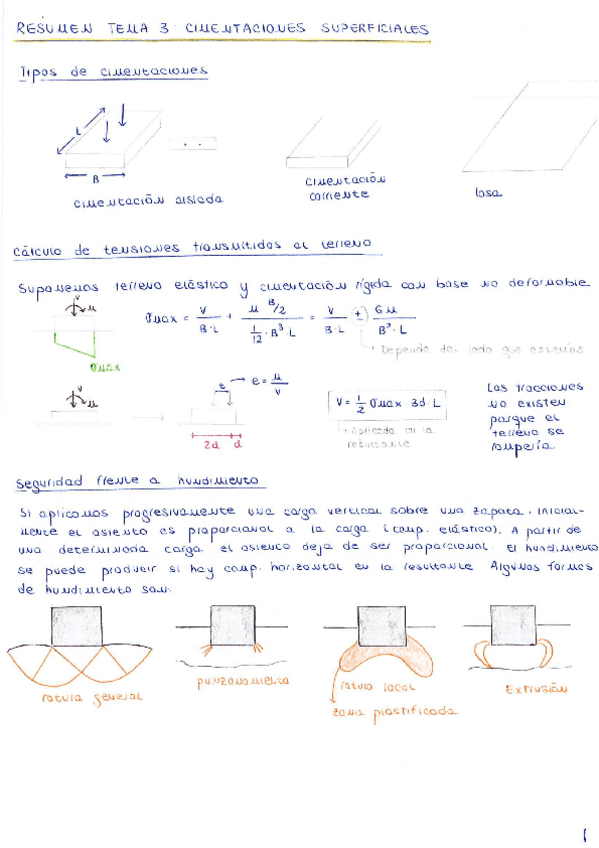 RESUMEN TEMA 3: CIMENTACIONES SUPERFICIALES
Tipos de cimentaciones
L
B
cimentación aislada
cimentación
corriente
losa
Cálculo de tensiones transmitidas al terreno
Suponemos terreno elástico y cimentación rígida con base no deformable
V
M
σmax = V/(B·L) + (M B/2)/(1/12·B³·L) = V/(B·L) ± 6M/(B²·L)
Depende del lado que estemos
σmax
V
M
e → e = M/V
2d d
V = 1/2 σmax 3d·L
Aplicada en la
resultante
Las tracciones
no existen
porque el
terreno se
rompería
Seguridad frente a hundimiento
Si aplicamos progresivamente una carga vertical sobre una zapata, inicial-
mente el asiento es proporcional a la carga (comp. elástico). A partir de
una determinada carga el asiento deja de ser proporcional. El hundimiento
se puede producir si hay comp. horizontal en la resultante. Algunas formas
de hundimiento son:
rotura general
punzonamiento
rotura local
zona plastificada
Extrusión
1